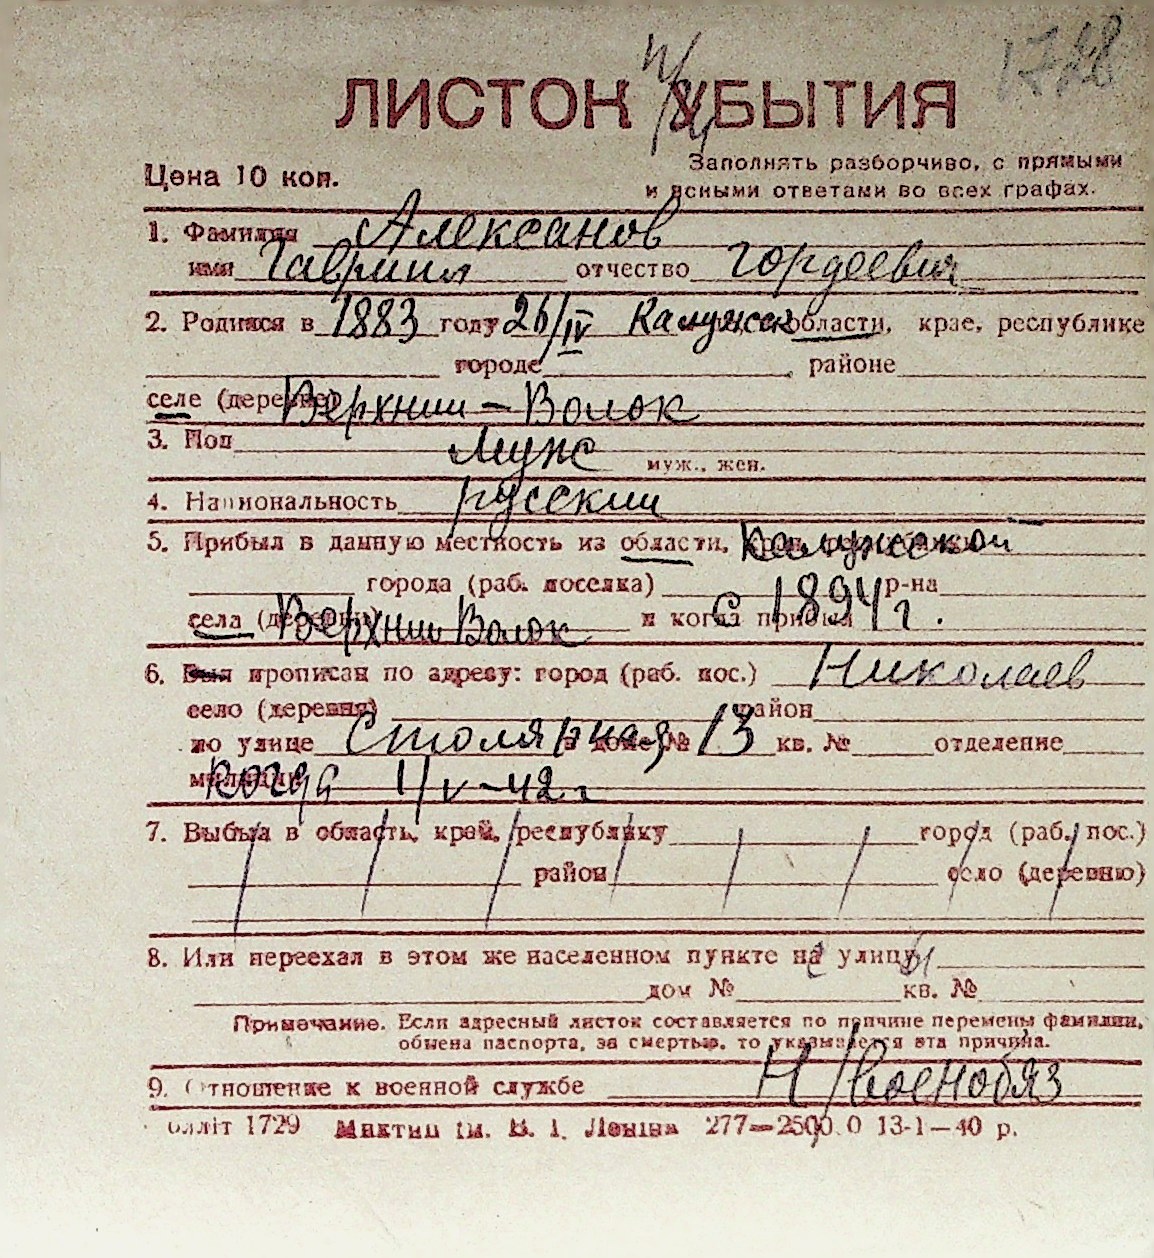 1728
ЛИСТОК УБЫТИЯ
Цена 10 коп.
Заполнять разборчиво, с прямыми
и ясными ответами во всех графах.
1. Фамилия Алексанов
имя Гавриил отчество Гордеевич
2. Родился в 1883 году 26/IV Калужск области, крае, республике
городе районе
селе (деревне) Верхний-Волок
3. Пол Муж муж., жен.
4. Национальность русский
5. Прибыл в данную местность из области, Калужской
города (раб. поселка) р-на
села (деревни) Верхний Волок и когда прибыл С 1894 г.
6. Был прописан по адресу: город (раб. пос.) Николаев
село (деревня) район
по улице Столярная дом № 13 кв. № отделение
милиции Когда 1/V-42 г
7. Выбыл в область, край, республику город (раб. пос.)
район село (деревню)
8. Или переехал в этом же населенном пункте на улицу
дом № кв. №
Примечание. Если адресный листок составляется по причине перемены фамилии,
обмена паспорта, за смертью, то указывается эта причина.
9. Отношение к военной службе Н/военобяз
1729 ім. В. І. Леніна 277—2500.0 13-1—40 р.